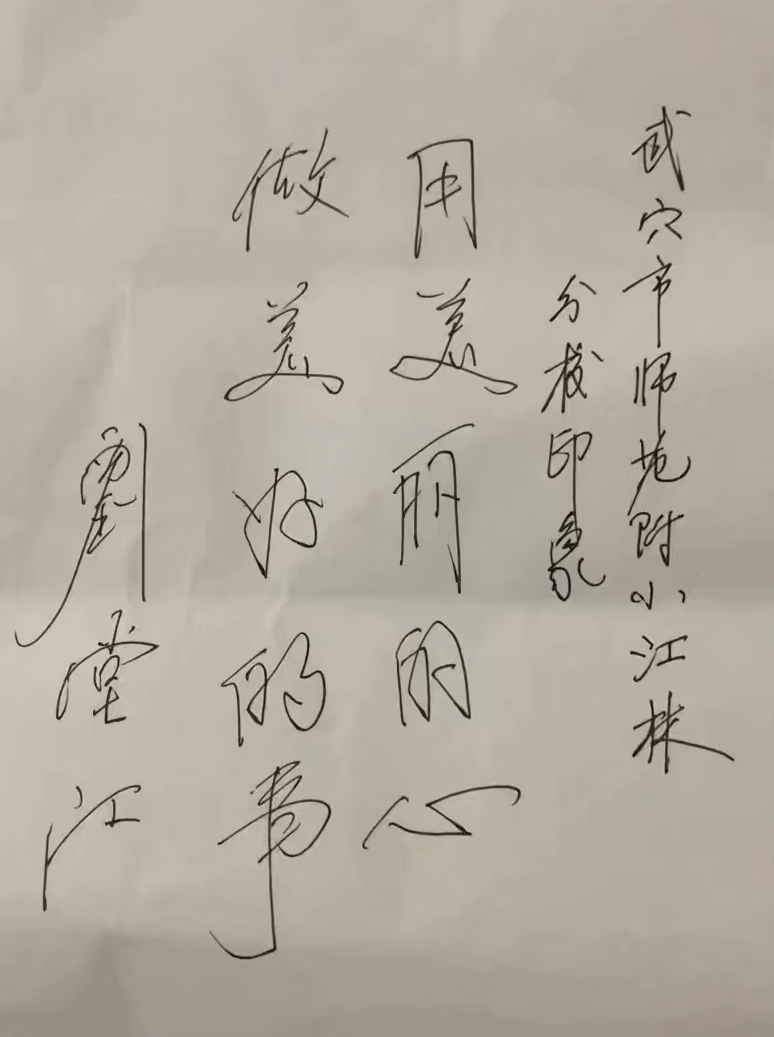 武穴市师范附小江林
分校印象
用美丽的心
做美好的事
劉堂江